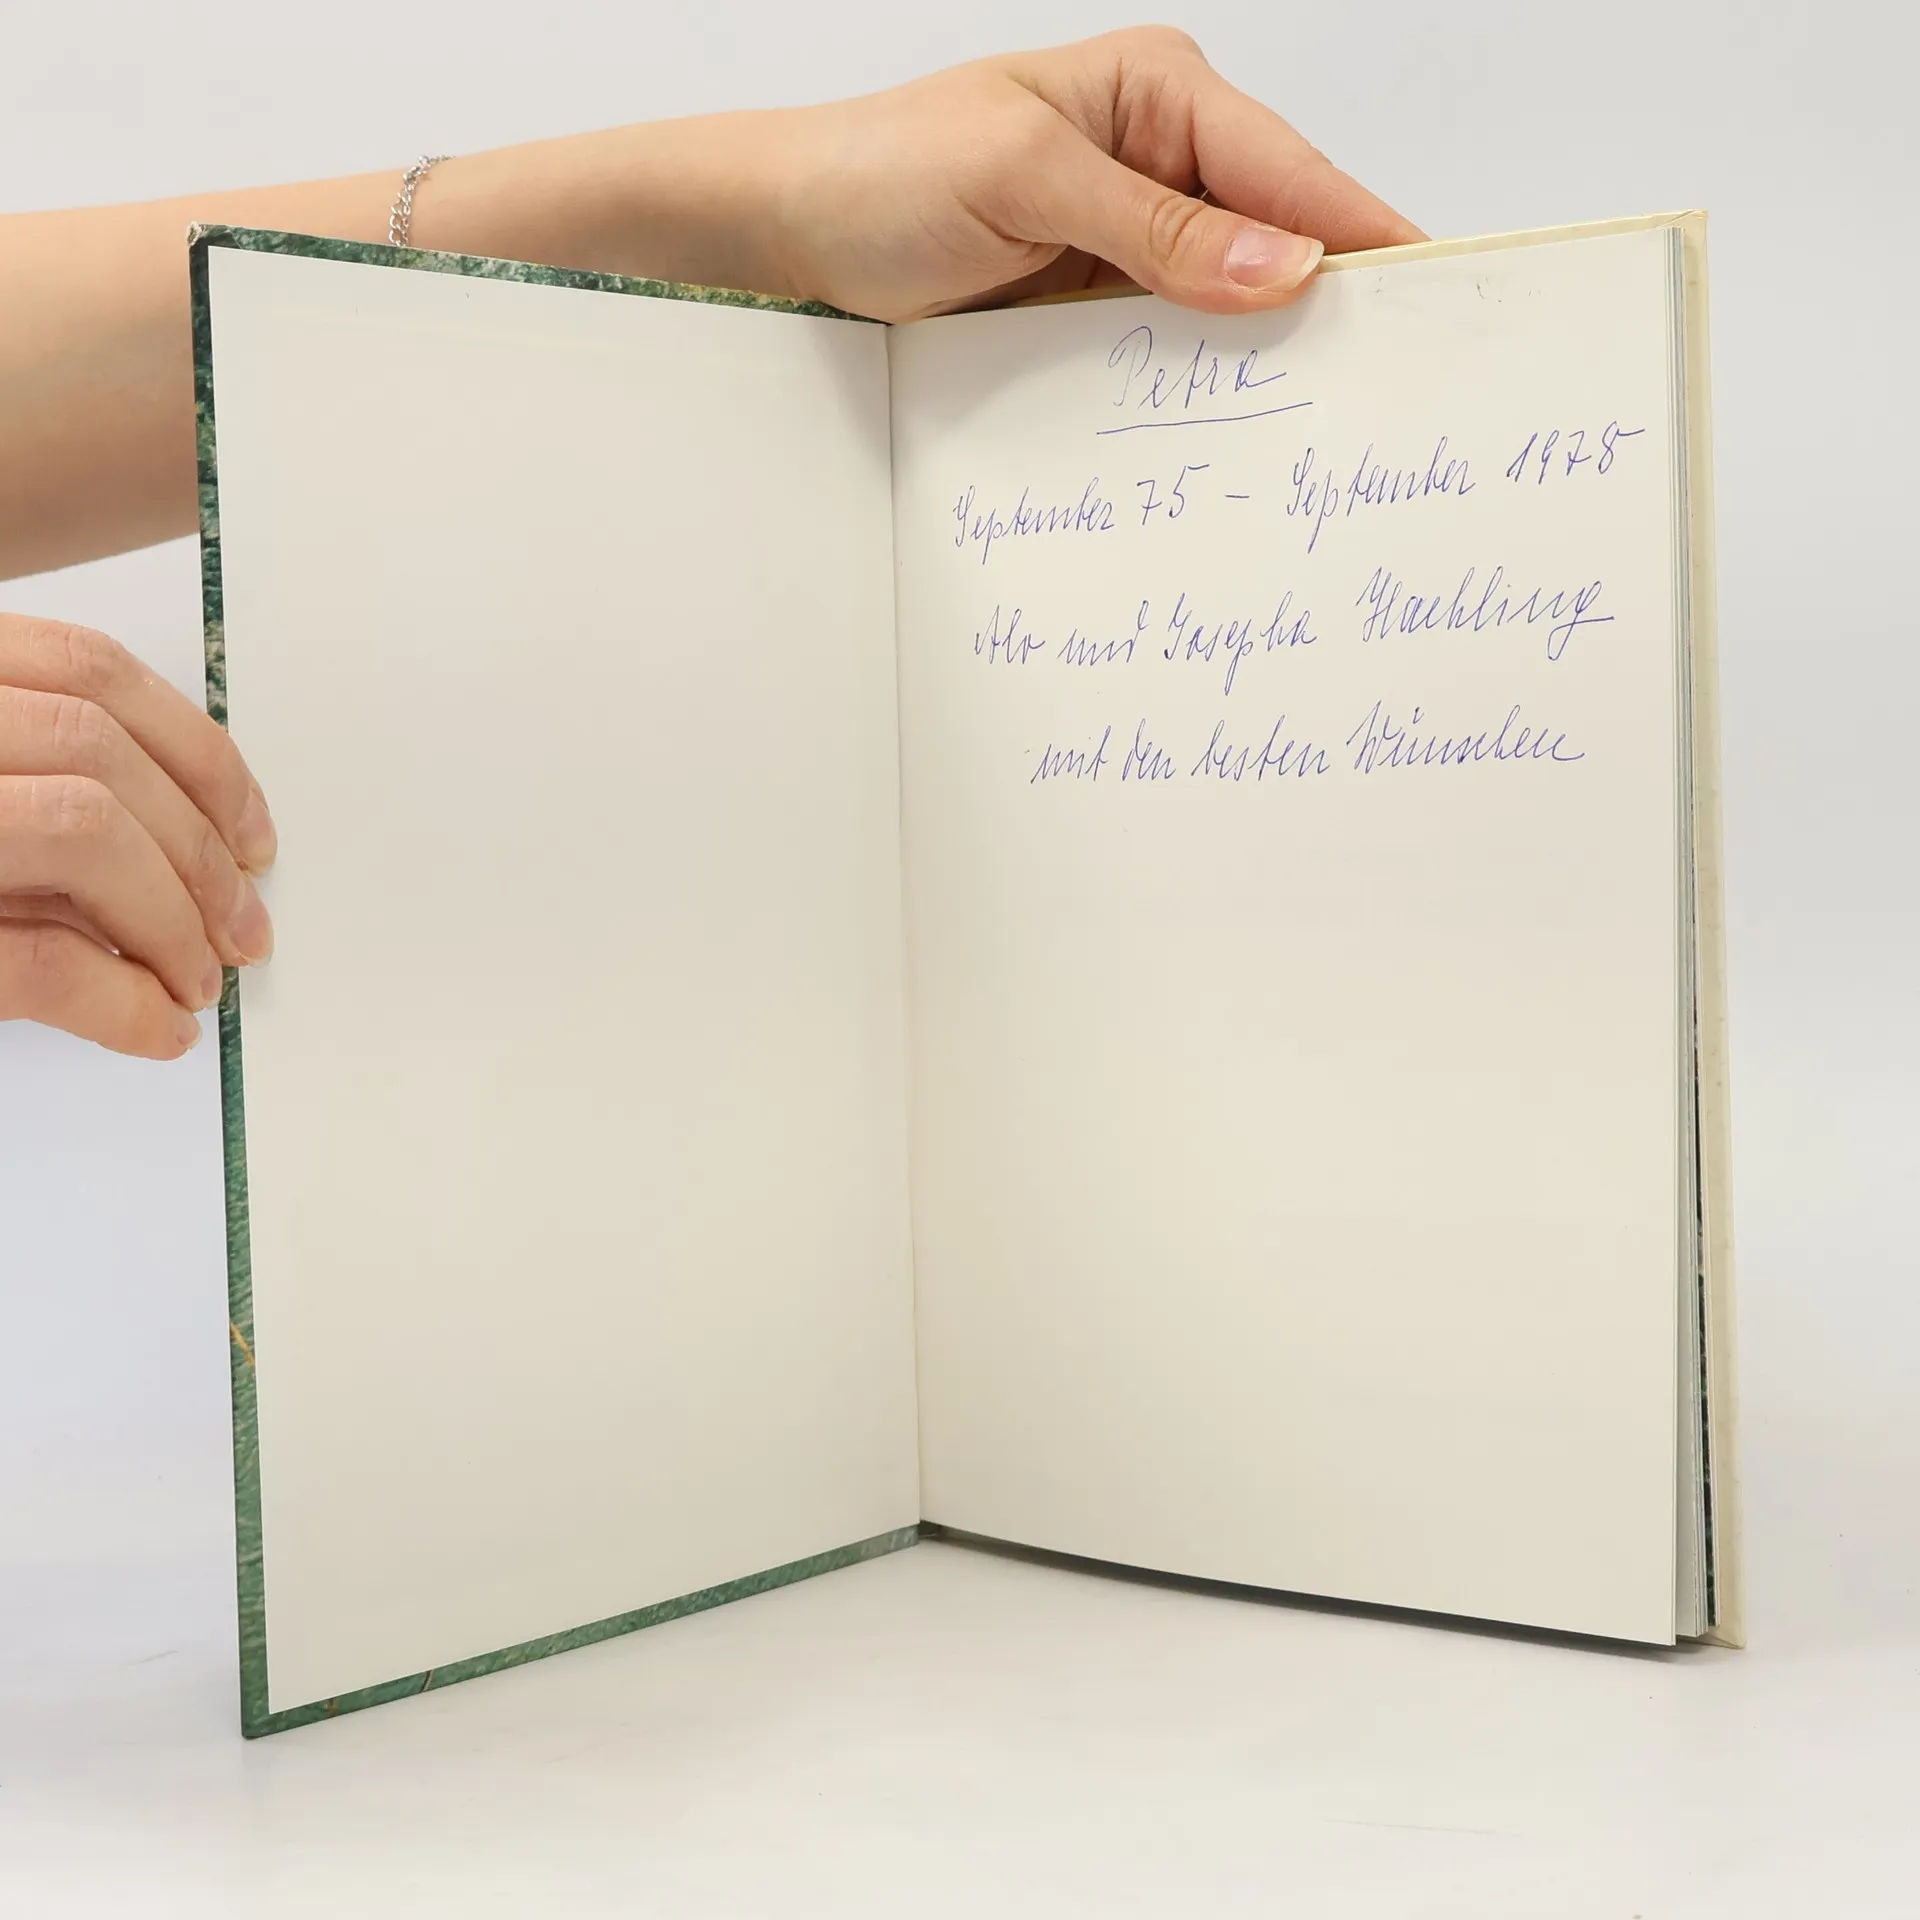 Petra
September 75 – September 1978
Alo und Josepha Haehling
mit den besten Wünschen